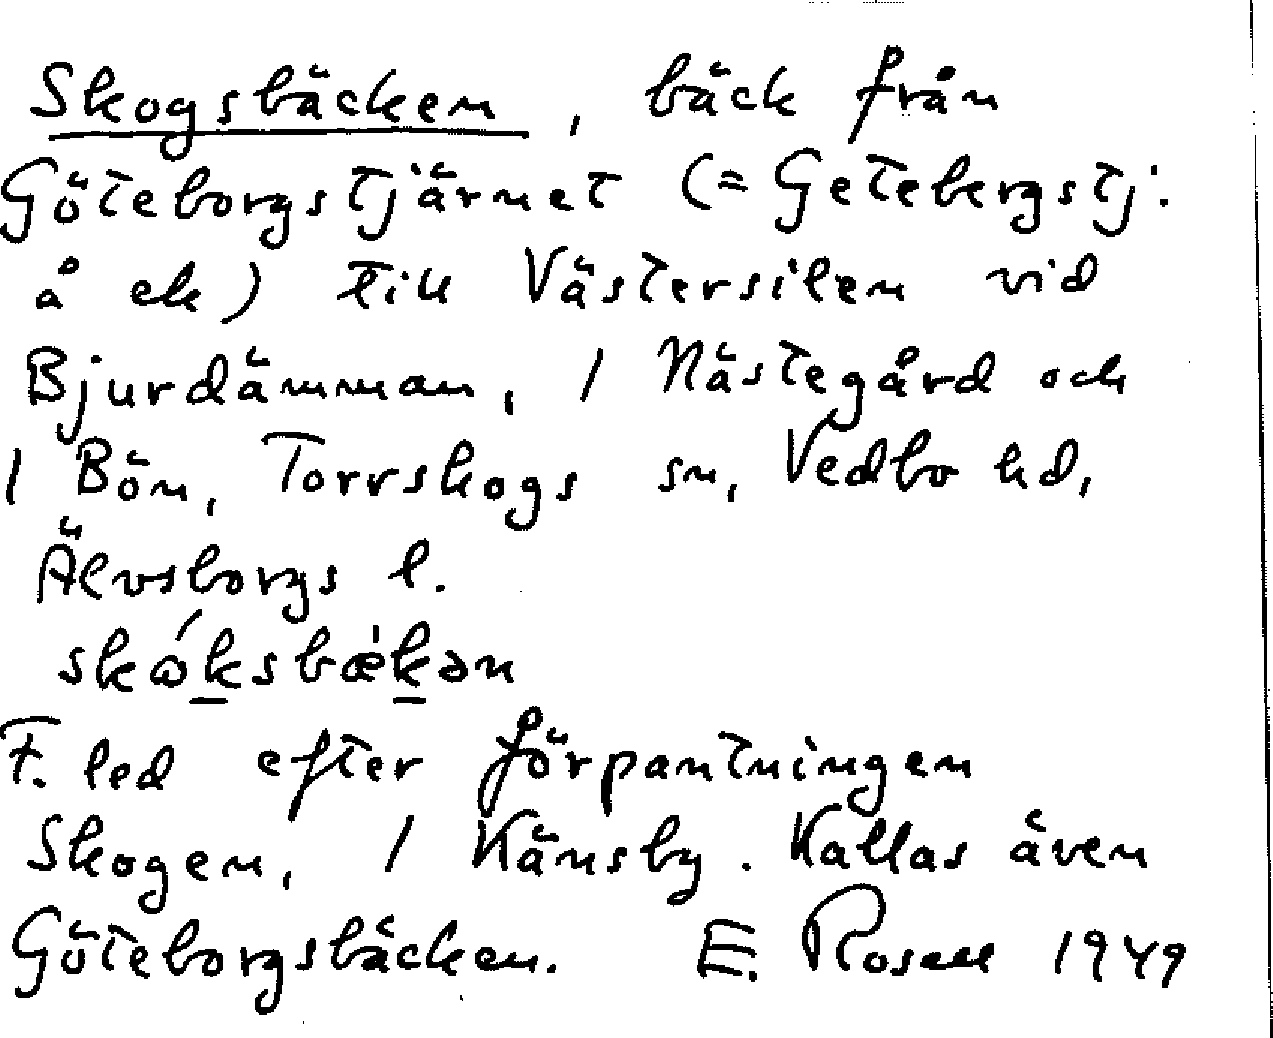 Skogsbäcken, bäck från
Göteborgstjärnet (= Getebergstj.
å ek) till Västersilen vid
Bjurdämman, / Nästegård och
/ Bön, Torrskogs sn, Vedbo hd,
Älvsborgs l.
skɷ́ksbæ̀kən
F. led efter förpantningen
Skogen, / Känsby. Kallas även
Göteborgsbäcken. E. Rosell 1949